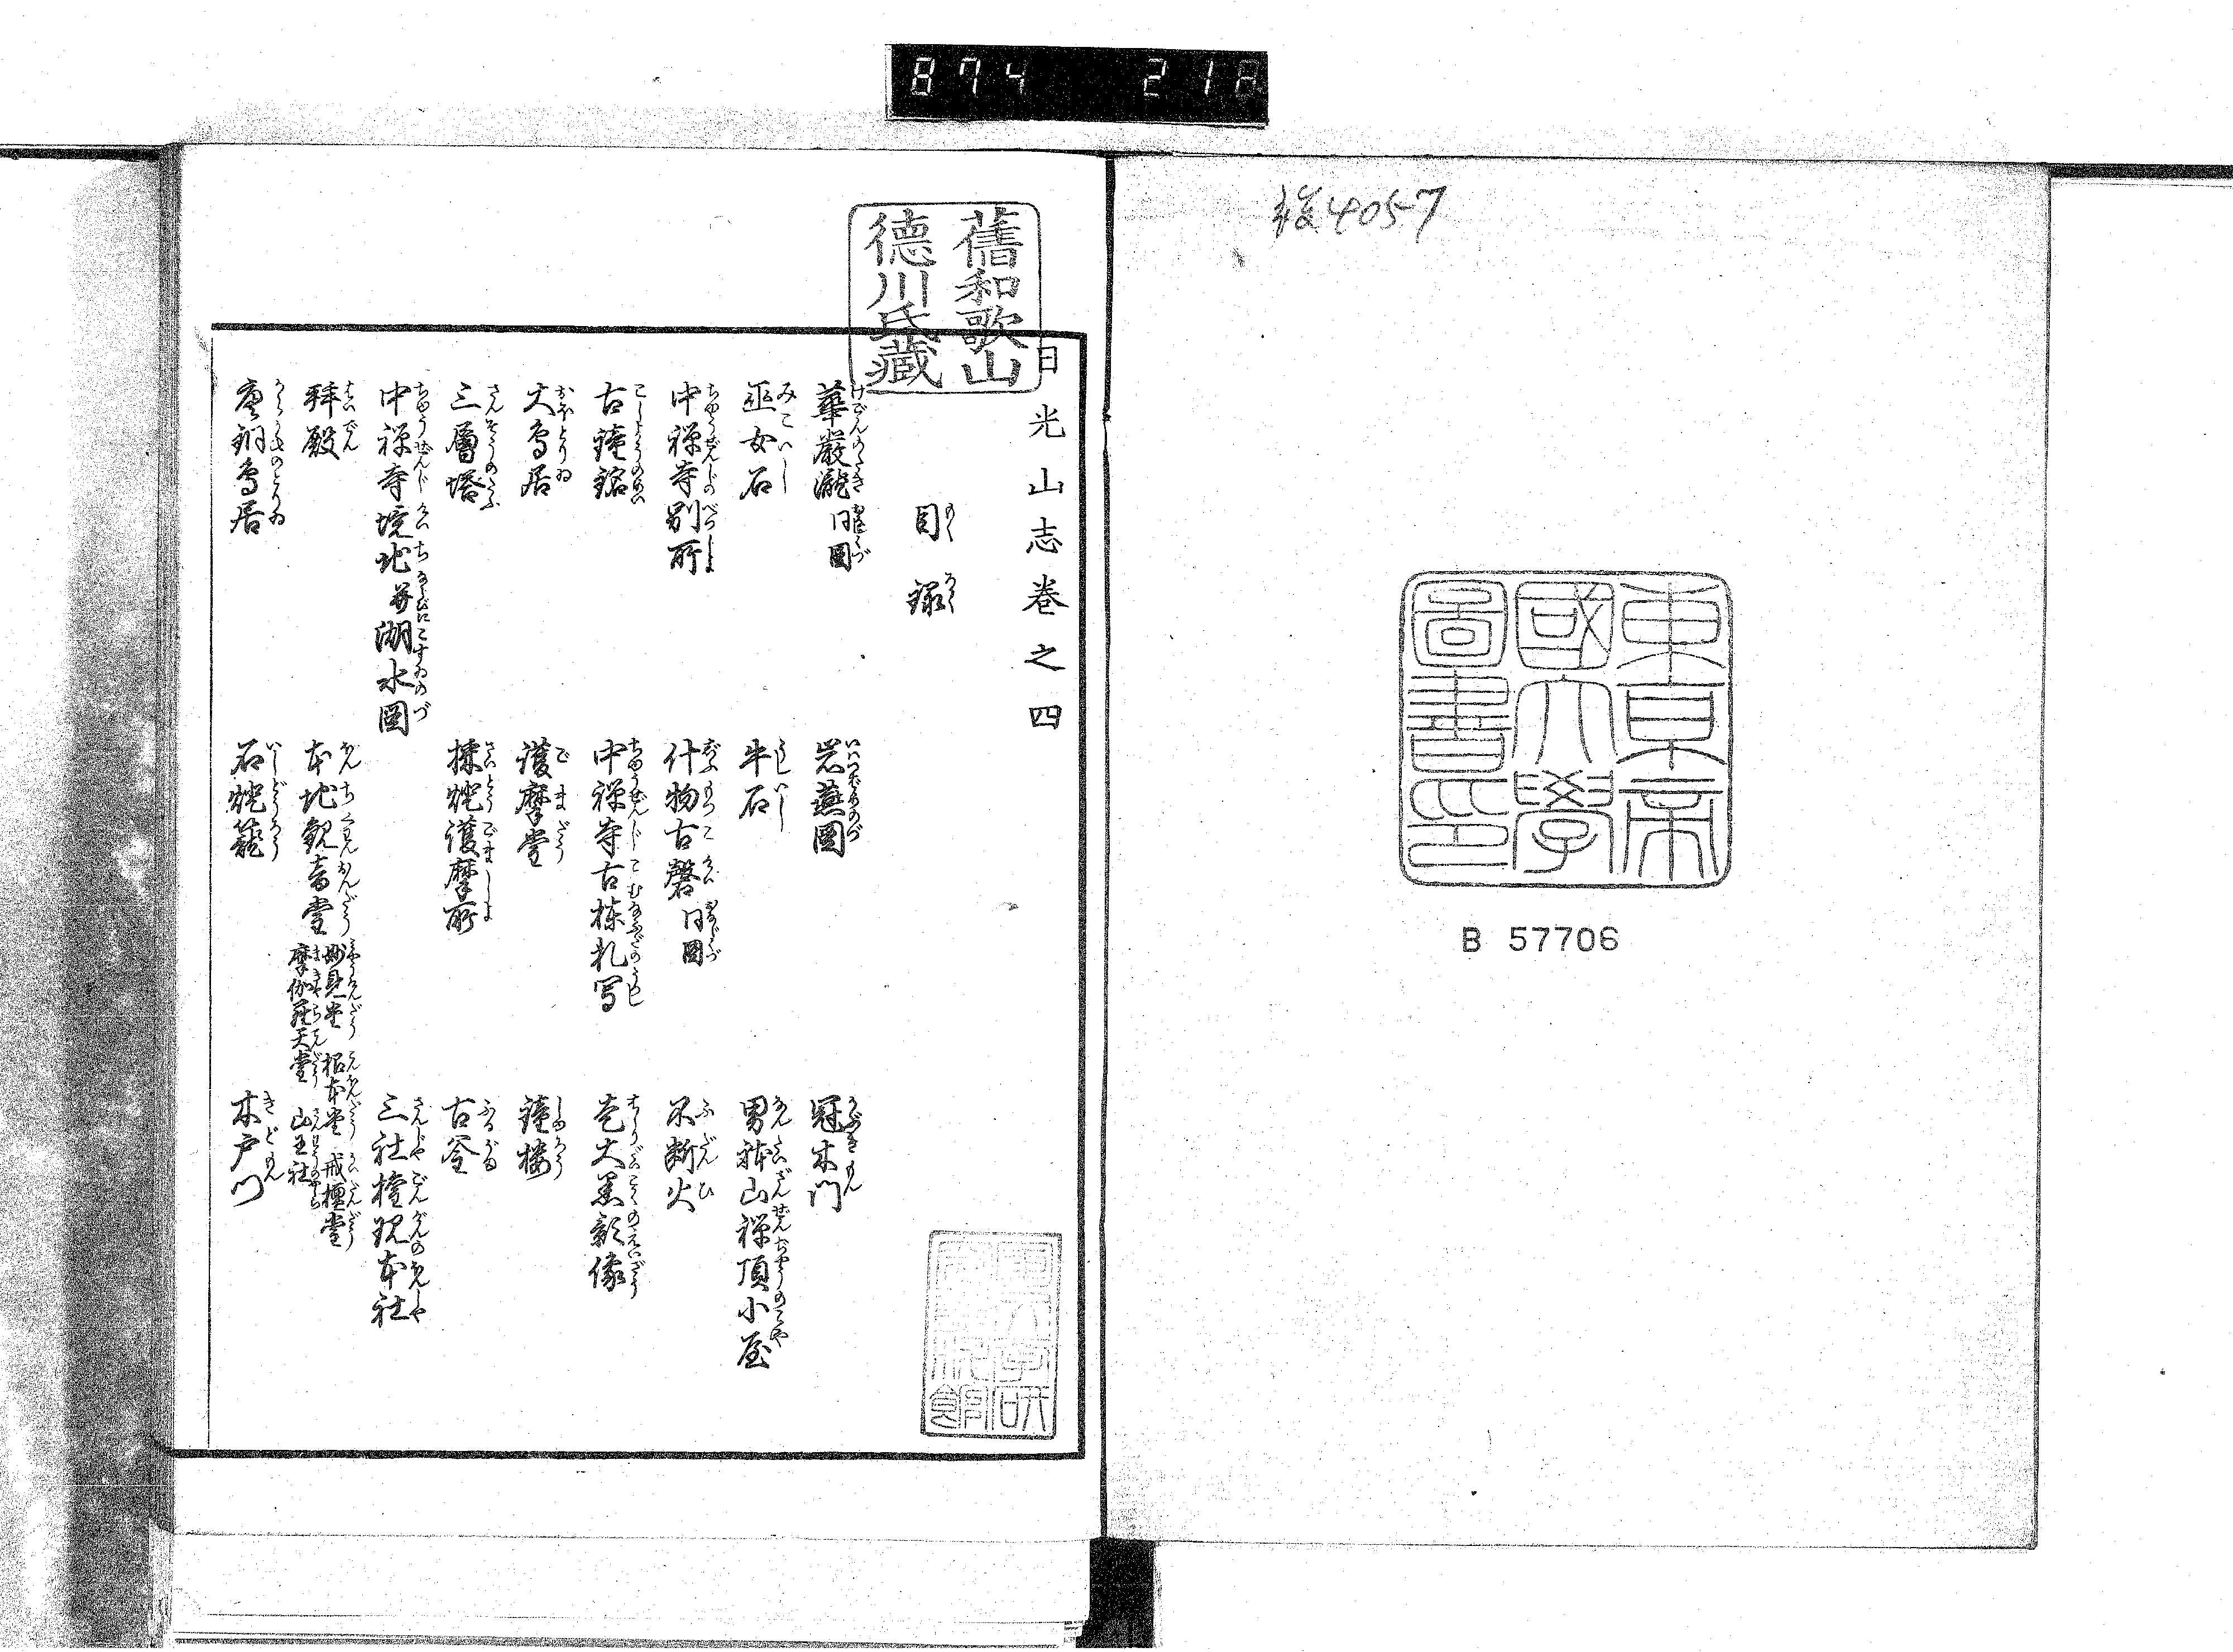 874 21
4057
東京帝
國大學
圖書印
B 57706
舊和歌山
德川氏藏
日光山志巻之四
目録
華厳瀧 同圖
岩燕圖
冠木門
巫女石
牛石
男体山禅頂小屋
中禅寺別所
什物古磬 同圖
不断火
古鐘銘
中禅寺古棟札写
走大黒影像
大鳥居
護摩堂
鐘楼
三層塔
採燈護摩所
古釜
中禅寺境地并湖水圖
三社権現本社
拝殿
本地観音堂 妙見堂 根本堂 戒壇堂
摩伽羅天堂 山王社
唐銅鳥居
石燈籠
木戸門